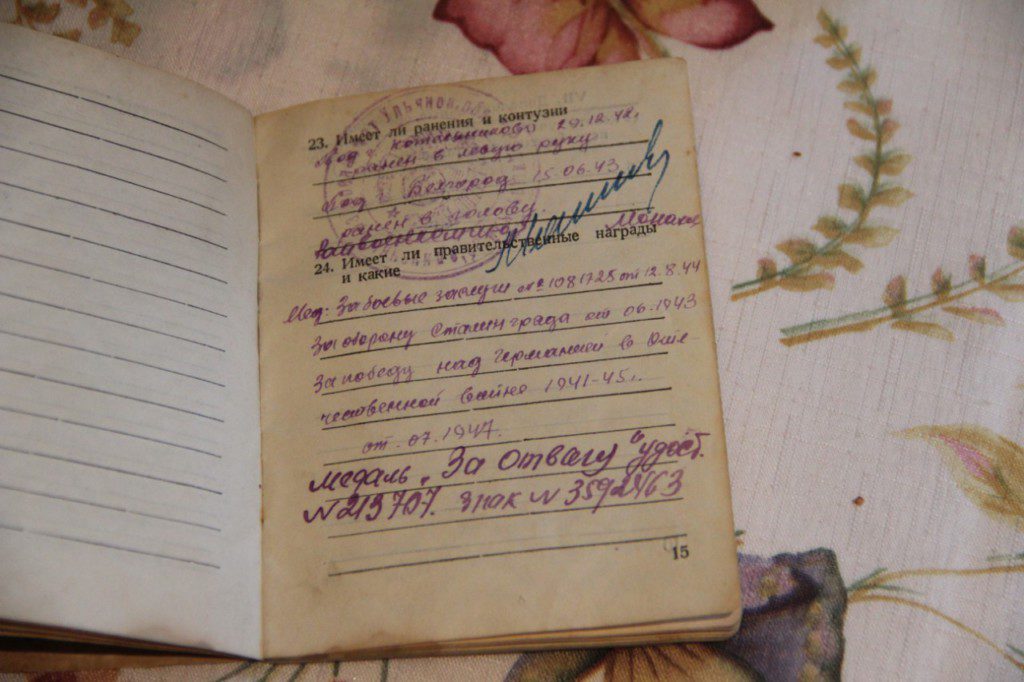 23. Имеет ли ранения и контузии
Под г. Котельниково 29.12.42г.
ранен в левую руку
Под г. Белгород 15.06.43
ранен в голову
24. Имеет ли правительственные награды
и какие
Мед: За боевые заслуги №1081725 от 12.8.44
За оборону Сталинграда от 06.1943
За победу над Германией в Оте
чественной войне 1941-45г.
от .07.1947.
медаль "За отвагу" удост.
N213707. знак N3592463
15